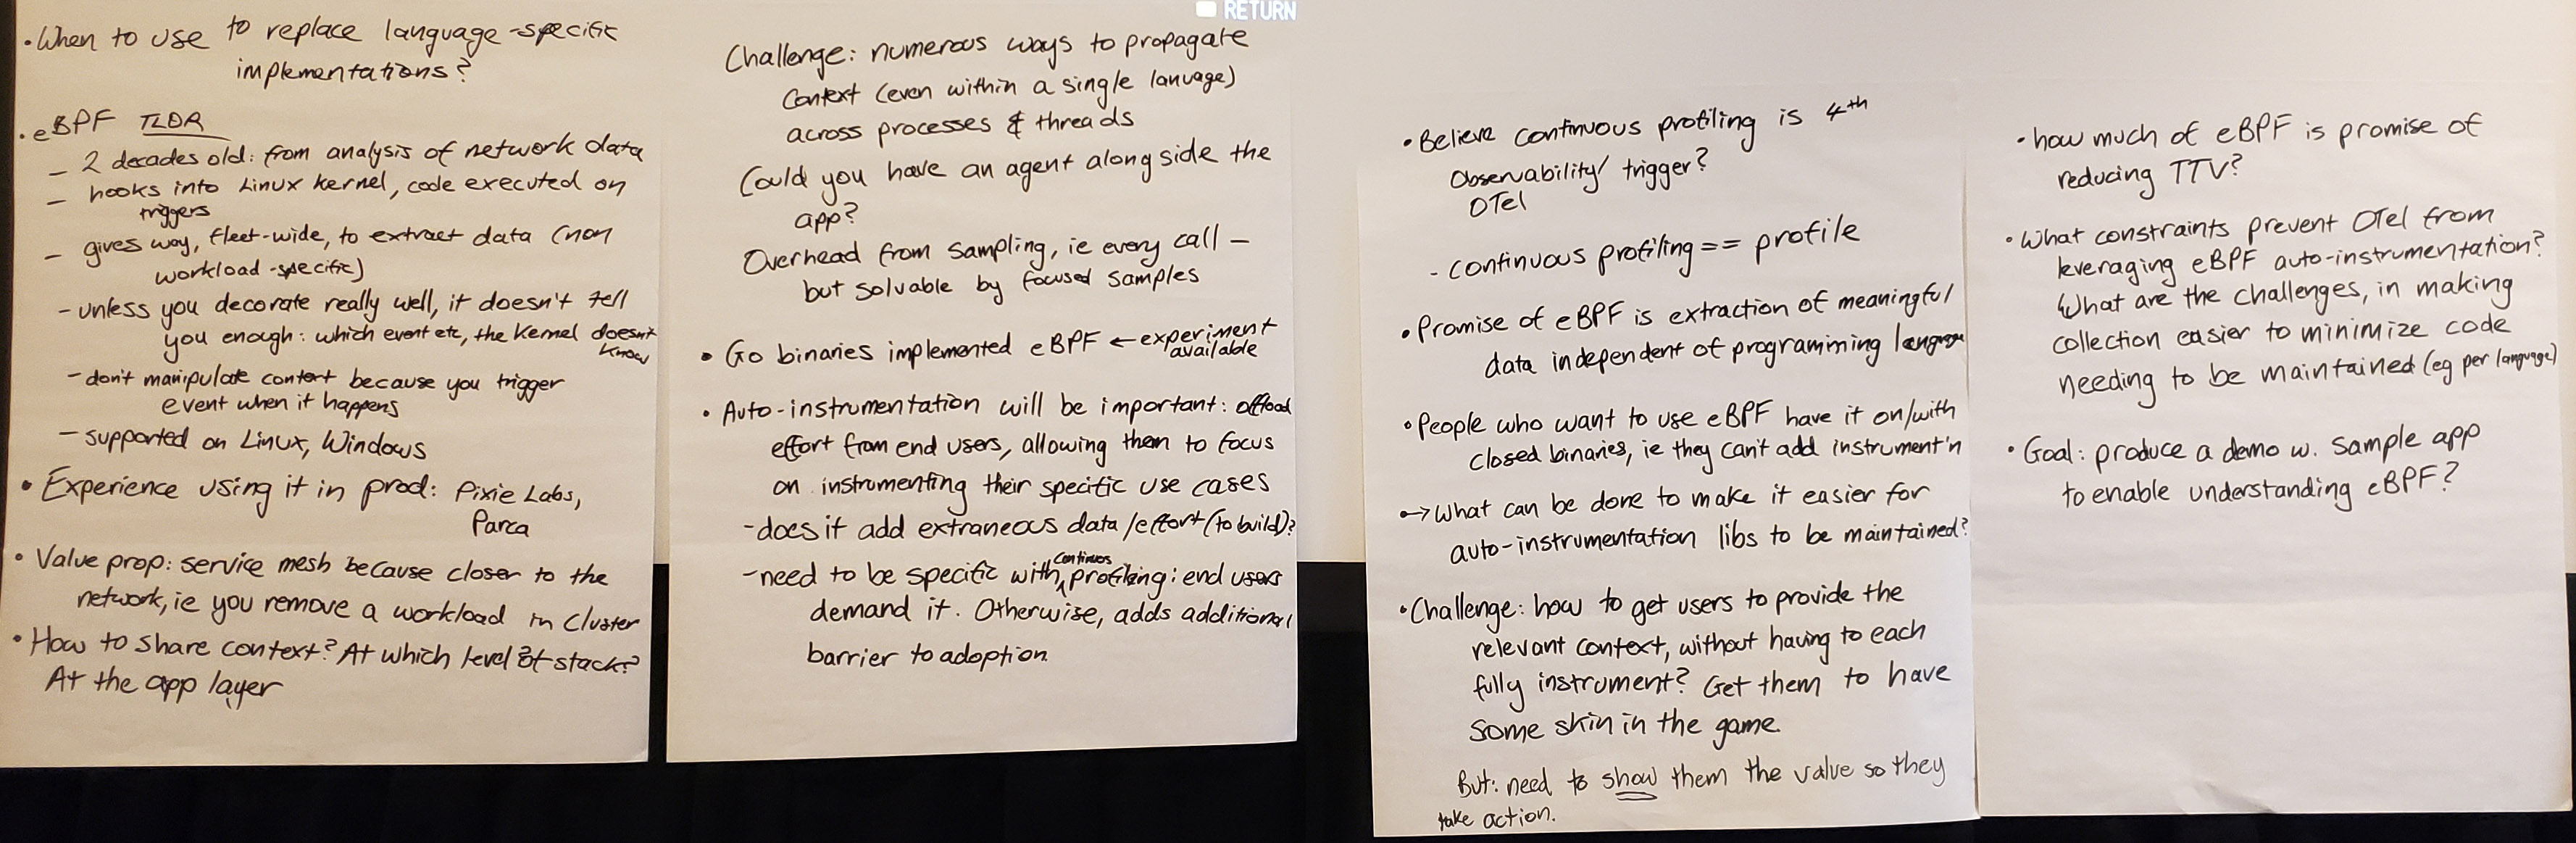 RETURN
• When to use to replace language-specific
implementations?
• eBPF TLDR
- 2 decades old: from analysis of network data
- hooks into Linux kernel, code executed on
triggers
- gives way, fleet-wide, to extract data (non
workload-specific)
- unless you decorate really well, it doesn't tell
you enough: which event etc, the kernel doesn't
know
- don't manipulate context because you trigger
event when it happens
- supported on Linux, Windows
• Experience using it in prod: Pixie Labs,
Parca
• Value prop: service mesh because closer to the
network, ie you remove a workload in cluster
• How to share context? At which level of stack?
At the app layer
Challenge: numerous ways to propagate
context (even within a single lanuage)
across processes & threads
Could you have an agent along side the
app?
Overhead from sampling, ie every call –
but solvable by focused samples
• Go binaries implemented eBPF ← experiment
available
• Auto-instrumentation will be important: offload
effort from end users, allowing them to focus
on instrumenting their specific use cases
- does it add extraneous data/effort (to build)?
continuos
- need to be specific with profiling: end users
demand it. Otherwise, adds additional
barrier to adoption
• Believe continuous profiling is 4th
Observability/ trigger?
OTel
- continuous profiling == profile
• Promise of eBPF is extraction of meaningful
data independent of programming language
• People who want to use eBPF have it on/with
closed binaries, ie they can't add instrument'n
→ What can be done to make it easier for
auto-instrumentation libs to be maintained?
• Challenge: how to get users to provide the
relevant context, without having to each
fully instrument? Get them to have
some skin in the game
But: need to show them the value so they
take action.
• how much of eBPF is promise of
reducing TTV?
• What constraints prevent OTel from
leveraging eBPF auto-instrumentation?
What are the challenges, in making
collection easier to minimize code
needing to be maintained (eg per language)
• Goal: produce a demo w. sample app
to enable understanding eBPF?